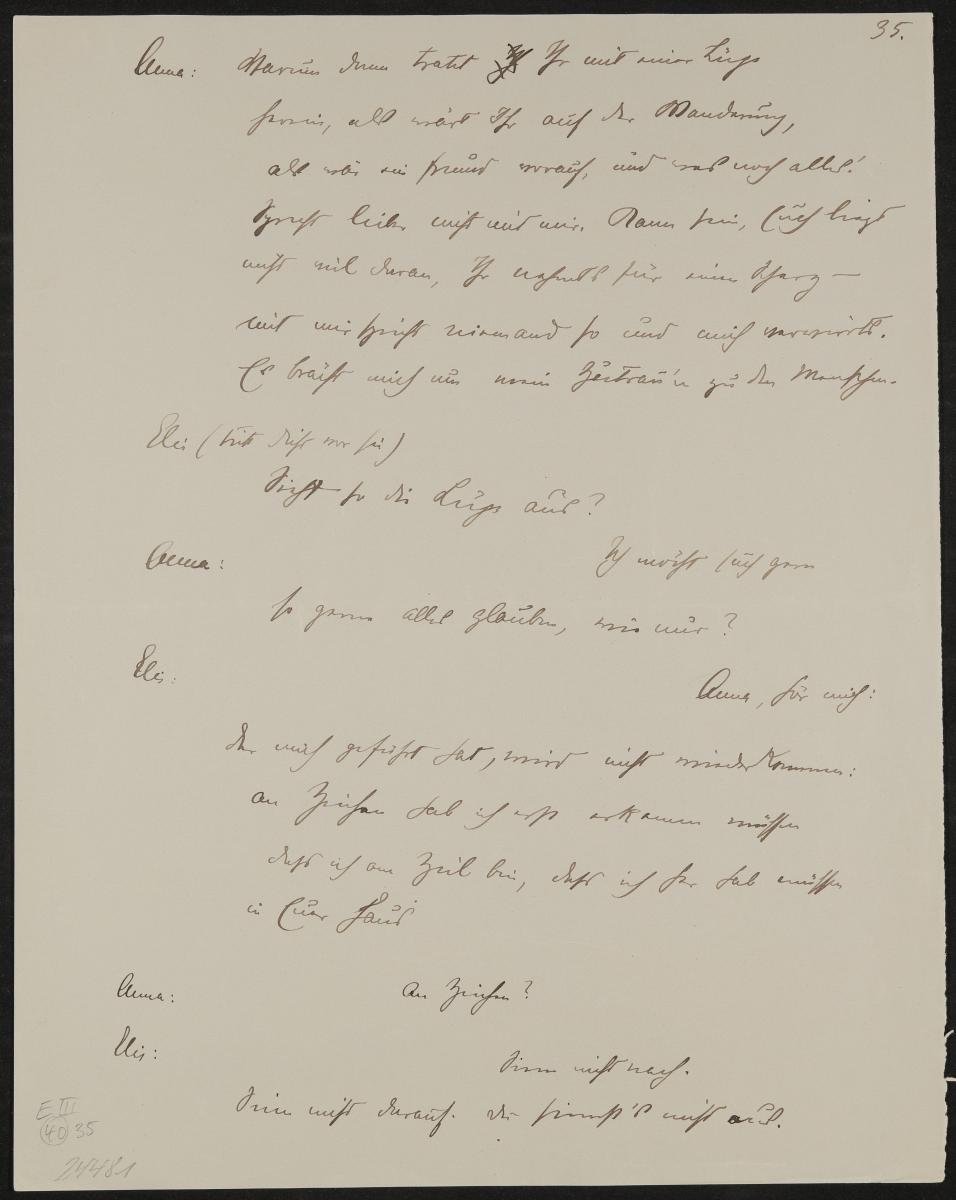 35.
Anna: Warum dann tratet Ihr mit einer Lüge
herein, als wärt Ihr auf der Wanderung,
als wär ein Freund vorauf, und was noch alles!
Sprecht lieber nicht mit mir. Kann sein, Euch liegt
nicht viel daran, Ihr nahmts für einen Scherz —
mit mir spricht niemand so und mich verwirrts.
Es bräch mich um mein Zutrau'n zu den Menschen.
Elis (tritt dicht vor sie)
Sieht so die Lüge aus?
Anna: Ich möcht Euch gern
so gerne alles glauben, wie nur?
Elis: Anna, hör mich:
der mich geführt hat, wird nicht wiederkommen:
an Zeichen hab ich erst erkennen müssen
dass ich am Ziel bin, dass ich her hab müssen
in Euer Haus
Anna: An Zeichen?
Elis: Sinn nicht nach.
Sinn nicht darauf. Du sinnst's nicht aus.
E III
40 35
24481